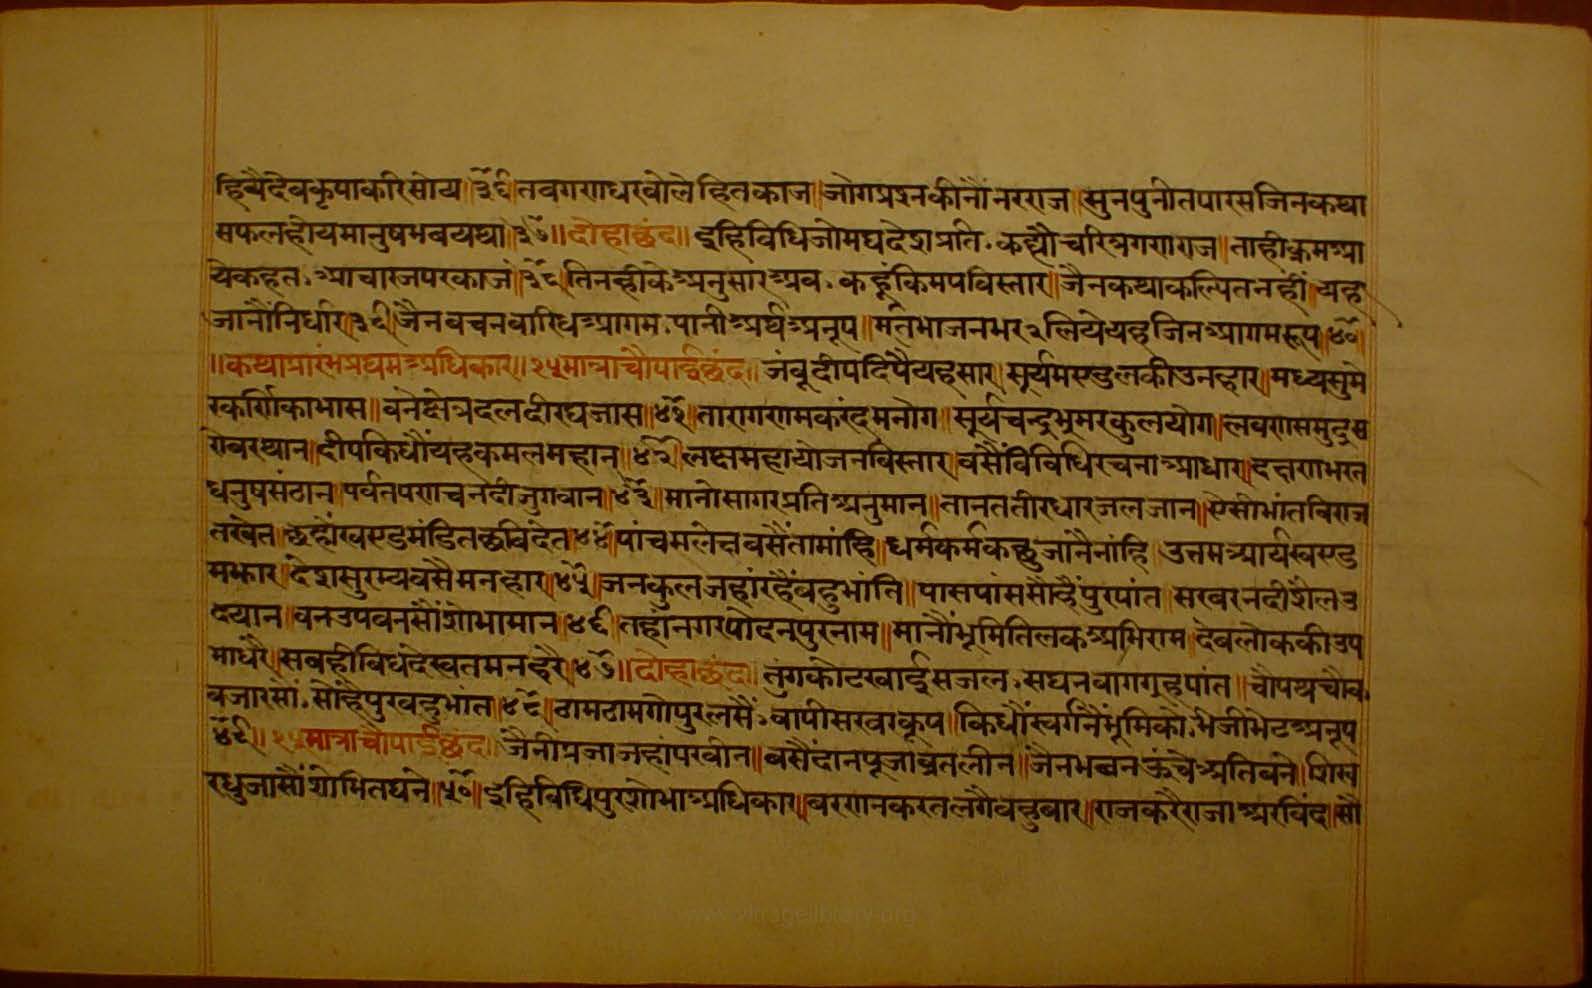 हियैदेवकृपाकरिसोय॥३६॥तवगणधरवोलेहितकाज॥जोगप्रश्नकीनौंनरराज॥सुनपुनीतपारसजिनकथा
सफलहोयमानुषभवयथा॥३७॥॥दोहाछंद॥इहिविधिजोमघदेशप्रति.कह्यौचरित्रगणराज॥ताहीक्रमआ
येकहत.आचारजपरकाज॥३८॥तिनहीकेअनुसारअव.कहूंकिमपविस्तार॥जैनकथाकल्पितनहीं॥यह
जानौंनिर्धार॥३९॥जैनवचनवारिधिआगम.पानीअर्थअनूप॥मतिभाजनभर२लियेयहजिनआगमरूप॥४०॥
॥कथाप्रारंभप्रथमअधिकार॥१५मात्राचौपाईछंद॥जंबूदीपदिपैयहसार॥सूर्यमण्डलकीउनहार॥मध्यसुमे
रकर्णिकाभास॥वनेछेत्रदलदीरघजास॥४१॥तारागणमकरंदमनोग॥सूर्यचन्द्रभ्रमरकुलयोग॥लवणसमुद्रस
रोवरथान॥दीपकिधौंयहकमलमहान॥४२॥लछमहायोजनविस्तार॥वसैंविविधिरचनाआधार॥दक्षणभरत
धनुषसंठान॥पर्वतपणचनदीजुगवान॥४३॥मानोसागरप्रतिअनुमान॥तानततीरधारजलजान॥ऐसीभांतविराज
तखेत॥छहौंखण्डमंडितछविदेत॥४४॥पांचमलेत्तवसैंतामांहि॥धर्मकर्मकछुजांनैनांहि॥उत्तमआर्यखण्ड
मझार॥देशसुरम्यवसैमनहार॥४५॥जनकुलजहांरहैंवहुभांति॥पासपांससोहैंपुरपांत॥सरवरनदीशैलउ
दयान॥वनउपवनसौंशोभामान॥४६॥तहांनगरपोदनपुरनाम॥मानौंभूमितिलकअभिराम॥देवलोककीउप
माधरै॥सवहीविधदेखतमनहरै॥४७॥॥दोहाछंद॥तुंगकोटखाईसजल.सघनवागगृहपांत॥चौपथचौक.
वजारसों.सोहैपुरवहुभांत॥४८॥ठामठामगोपुरलसैं.वापीसरवरकूप॥किधौंस्वर्गनैंभूमिको.भेजीभेटअनूप
४९॥॥१५मात्राचौपाईछंद॥जैनीप्रजाजहांपरवीन॥वसैंदानपूजाव्रतलीन॥जैनभवनऊंचेअतिवने॥शिख
रधुजासौंशोभितघने॥५०॥इहिविधिपुरशोभाअधिकार॥वरणनकरतलगैवहुवार॥राजकरैराजाअरविंद॥सौ